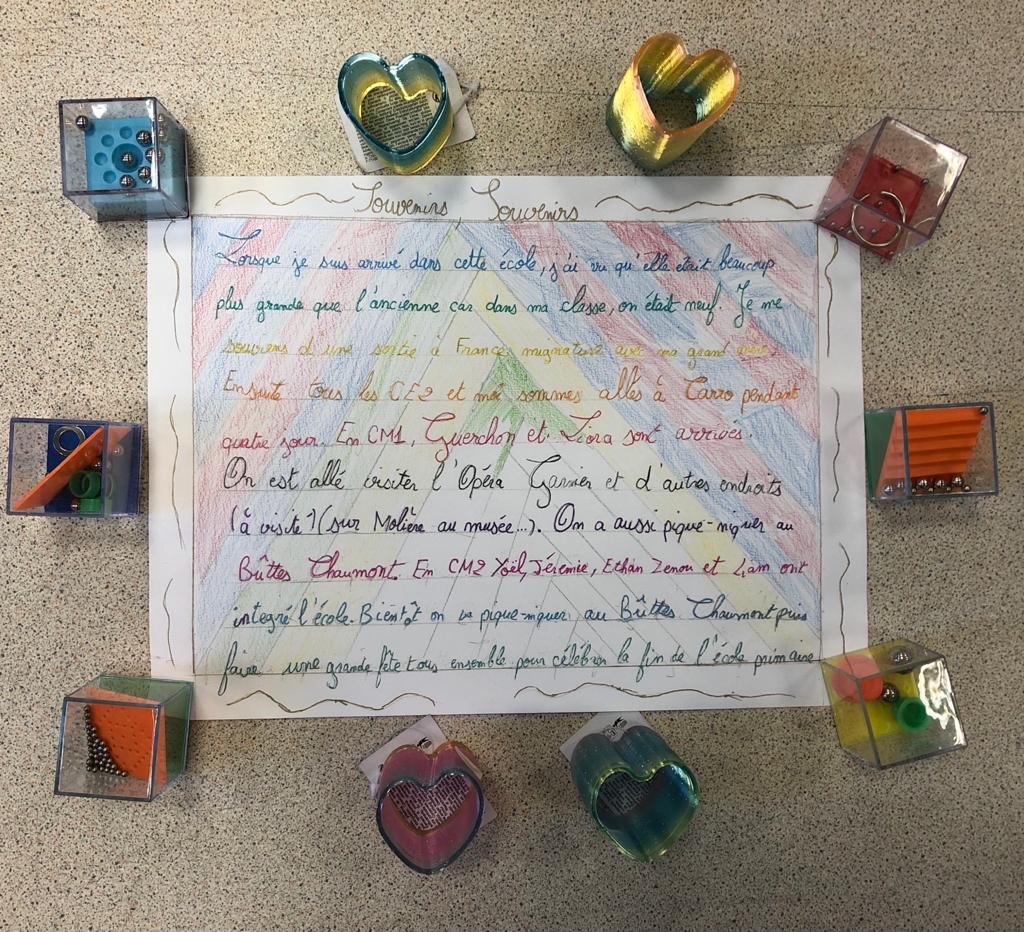 Souvenirs Souvenirs
Lorsque je suis arrivé dans cette école, j'ai vu qu'elle était beaucoup
plus grande que l'ancienne car dans ma classe, on était neuf. Je me
souviens d'une sortie à France mignature avec ma grand mère.
Ensuite tous les CE2 et moi sommes allés à Carro pendant
quatre jour. En CM1, Guerchon et Liora sont arrivés.
On est allé visiter l'Opéra Garnier et d'autres endroits
(à visité) (sur Molière au musée...). On a aussi pique-niquer au
Bûttes Chaumont. En CM2 Yoël, Jéremie, Ethan Zenou et Liam ont
integré l'école. Bientôt on va pique-niquer au Bûttes Chaumont puis
faire une grande fête tous ensemble pour célébrer la fin de l'école primaire